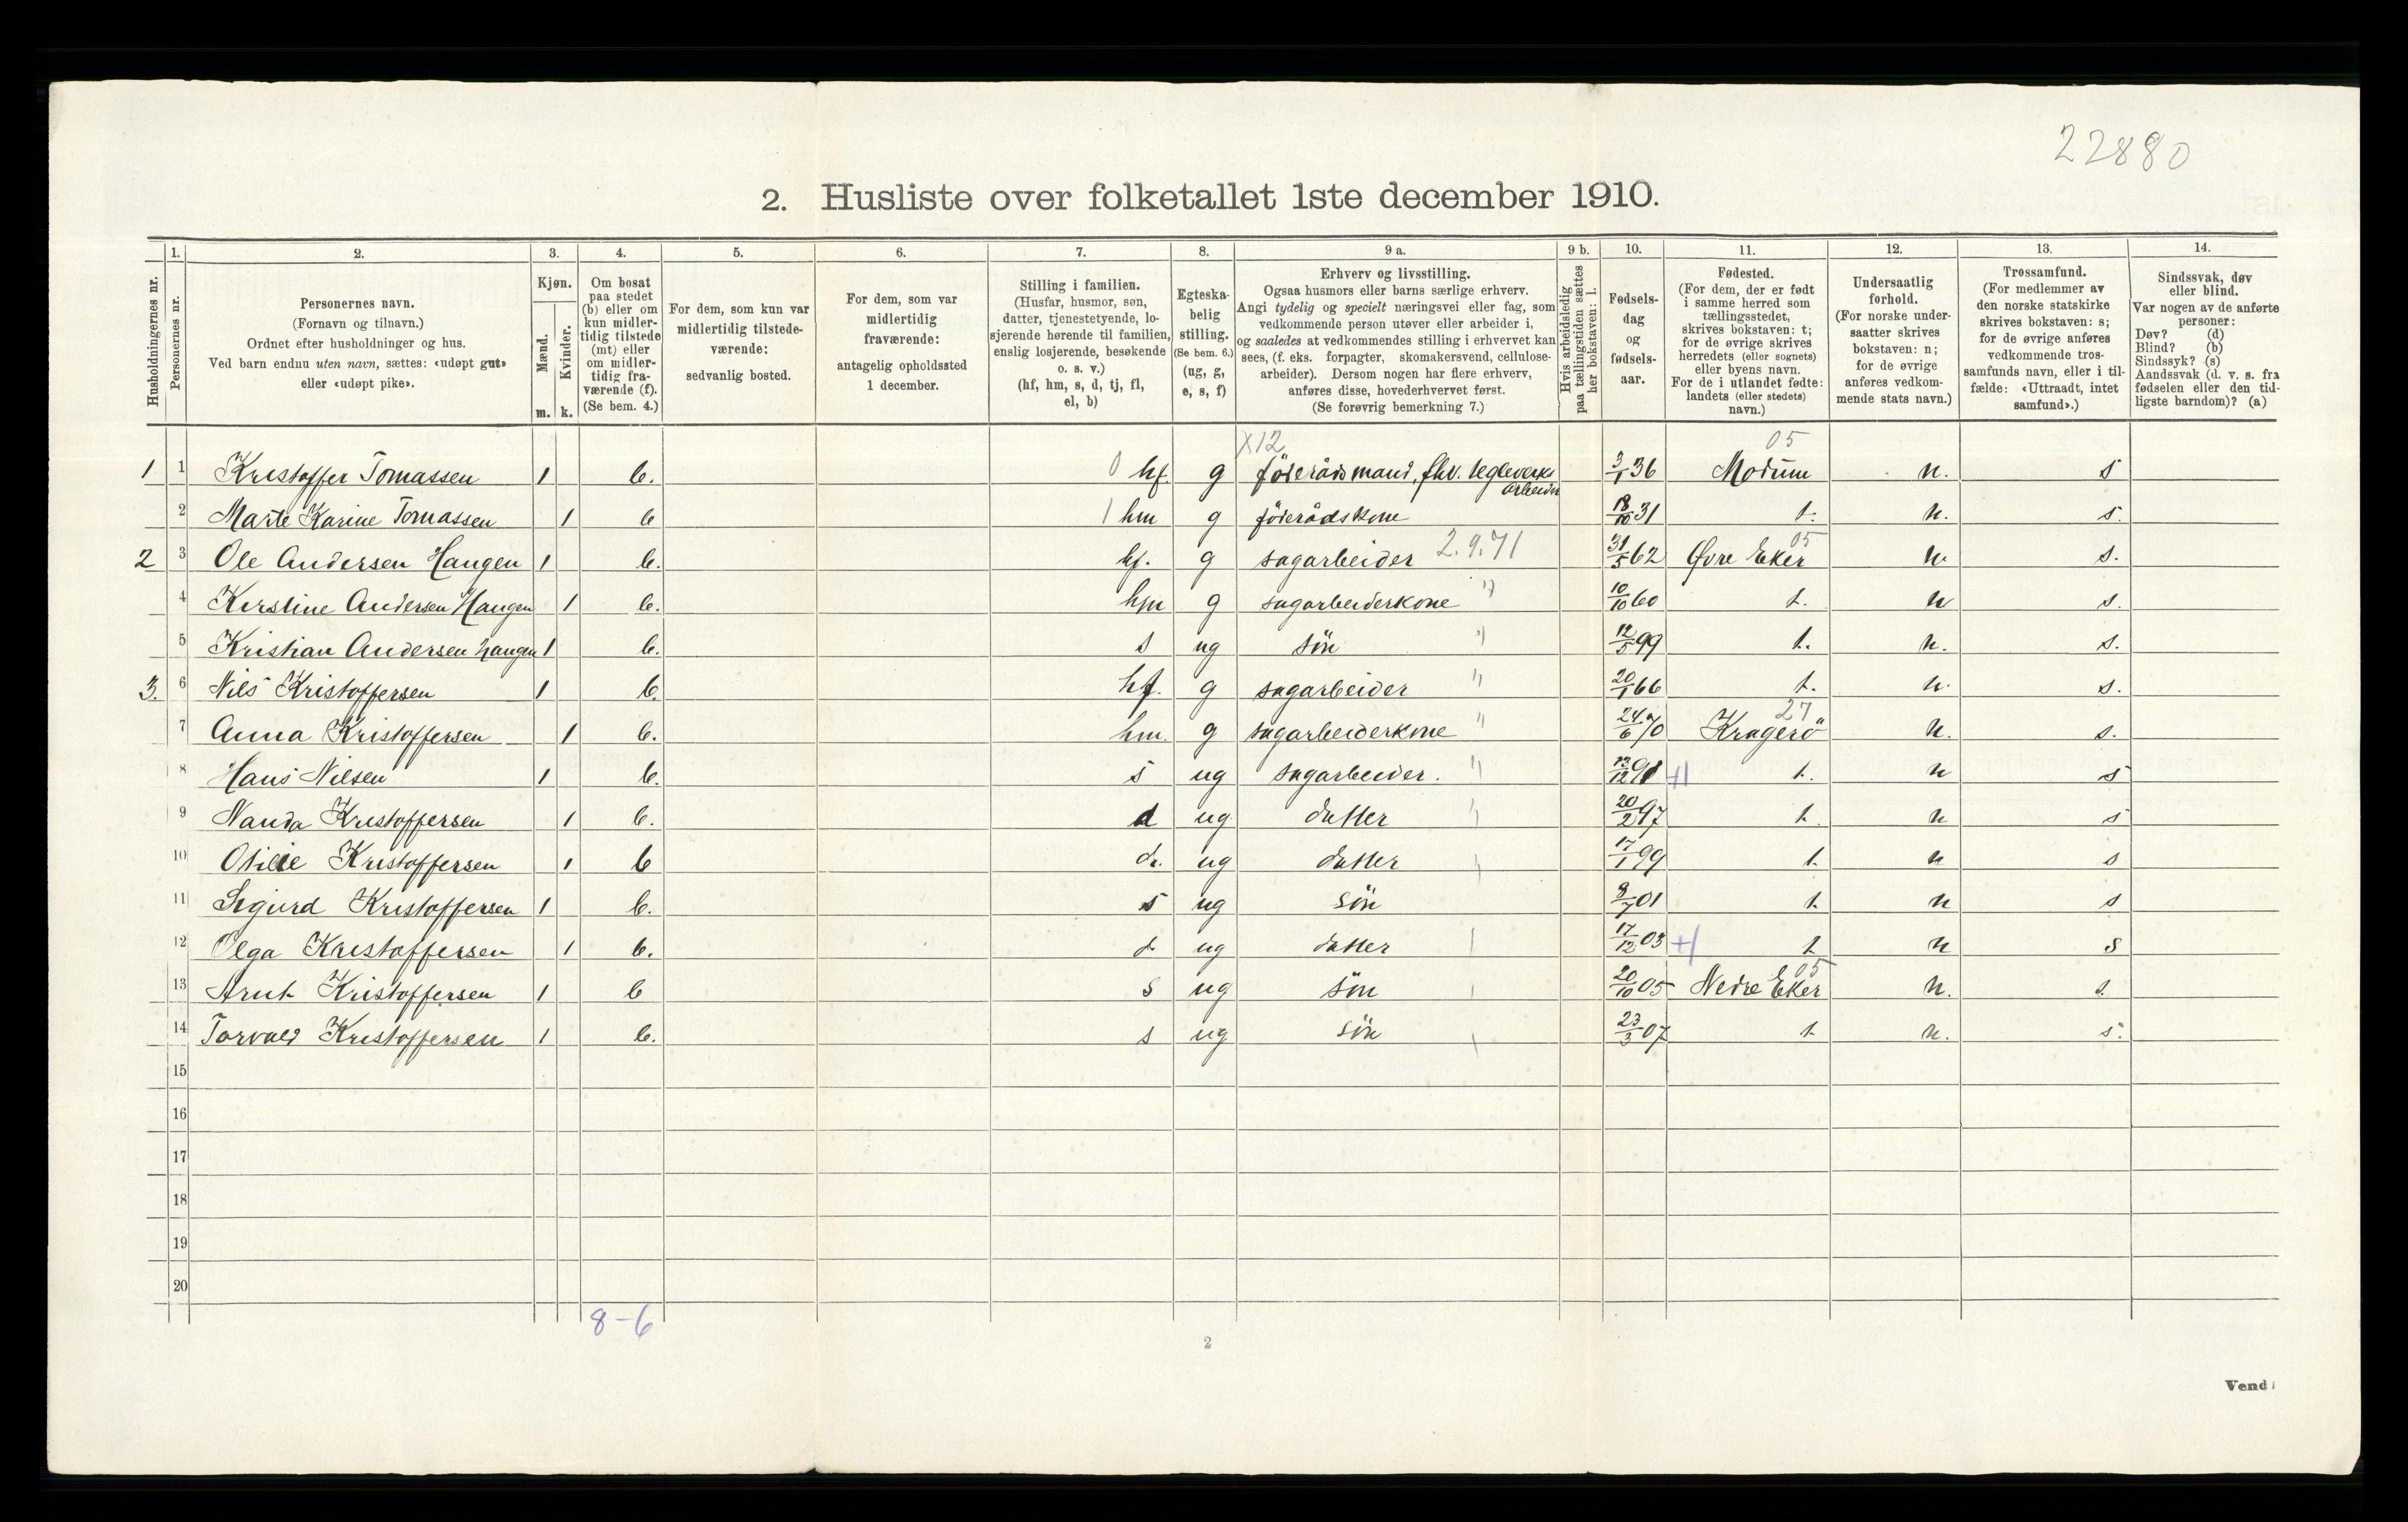 22880
2. Husliste over folketallet 1ste december 1910.
Husholdningernes nr.
1. Personernes nr.
2. Personernes navn.
(Fornavn og tilnavn.)
Ordnet efter husholdninger og hus.
Ved barn endnu uten navn, sættes: «udøpt gut»
eller «udøpt pike».
3. Kjøn.
Mænd. m.
Kvinder. k.
4. Om bosat
paa stedet
(b) eller om
kun midler-
tidig tilstede
(mt) eller
om midler-
tidig fra-
værende (f).
(Se bem. 4.)
5. For dem, som kun var
midlertidig tilstede-
værende:
sedvanlig bosted.
6. For dem, som var
midlertidig
fraværende:
antagelig opholdssted
1 december.
7. Stilling i familien.
(Husfar, husmor, søn,
datter, tjenestetyende, lo-
sjerende hørende til familien,
enslig losjerende, besøkende
o. s. v.)
(hf, hm, s, d, tj, fl,
el, b)
8. Egteska-
belig
stilling.
(Se bem. 6.)
(ug, g,
e, s, f)
9 a. Erhverv og livsstilling.
Ogsaa husmors eller barns særlige erhverv.
Angi tydelig og specielt næringsvei eller fag, som
vedkommende person utøver eller arbeider i,
og saaledes at vedkommendes stilling i erhvervet kan
sees, (f. eks. forpagter, skomakersvend, cellulose-
arbeider). Dersom nogen har flere erhverv,
anføres disse, hovederhvervet først.
(Se forøvrig bemerkning 7.)
9 b. Hvis arbeidsledig
paa tællingstiden sættes
her bokstaven: l.
10. Fødsels-
dag
og
fødsels-
aar.
11. Fødested.
(For dem, der er født
i samme herred som
tællingsstedet,
skrives bokstaven: t;
for de øvrige skrives
herredets (eller sognets)
eller byens navn.
For de i utlandet fødte:
landets (eller stedets)
navn.)
12. Undersaatlig
forhold.
(For norske under-
saatter skrives
bokstaven: n;
for de øvrige
anføres vedkom-
mende stats navn.)
13. Trossamfund.
(For medlemmer av
den norske statskirke
skrives bokstaven: s;
for de øvrige anføres
vedkommende tros-
samfunds navn, eller i til-
fælde: «Uttraadt, intet
samfund».)
14. Sindssvak, døv
eller blind.
Var nogen av de anførte
personer:
Døv? (d)
Blind? (b)
Sindssyk? (s)
Aandssvak (d. v. s. fra
fødselen eller den tid-
ligste barndom)? (a)
X12 05
1 1 Kristoffer Tomassen 1 b. 0 hf. g föderådsmand, fhv. teglverks arbeider 3/1 36 Modum n. s
2 Marte Karine Tomassen 1 b 1 hm g föderådskone 18/10 31 t. n. s.
2 3 Ole Andersen Haugen 1 b. hf. g sagarbeider 2.9.71 31/5 62 Øvre Eker 05 n. s.
4 Kirstine Andersen Haugen 1 b. hm g sagarbeiderkone " 10/10 60 t. n s.
5 Kristian Andersen Haugen 1 b. s ug sön " 12/5 99 t. n. s.
3. 6 Nils Kristoffersen 1 b. hf. g sagarbeider " 20/1 66 t. n. s.
7 Anna Kristoffersen 1 b. hm. g sagarbeiderkone " 24/6 70 Kragerö 27 n. s.
8 Hans Nilsen 1 b. s ug sagarbeider. " 13/12 91 +1 t. n s
9 Nanda Kristoffersen 1 b. d ug datter " 20/2 97 t. n s
10 Otilie Kristoffersen 1 b d. ug datter 17/1 99 t. n s
11 Sigurd Kristoffersen 1 b. s ug sön 9/7 01 t. n s
12 Olga Kristoffersen 1 b. d ug datter 17/12 03 +1 t n s
13 Arnt Kristoffersen 1 b s ug sön 20/10 05 Nedre Eker 05 n. s.
14 Torvald Kristoffersen 1 b. s ug sön 23/3 07 t n. s.
15
16
17
18
19
20
8-6
2
Vend!